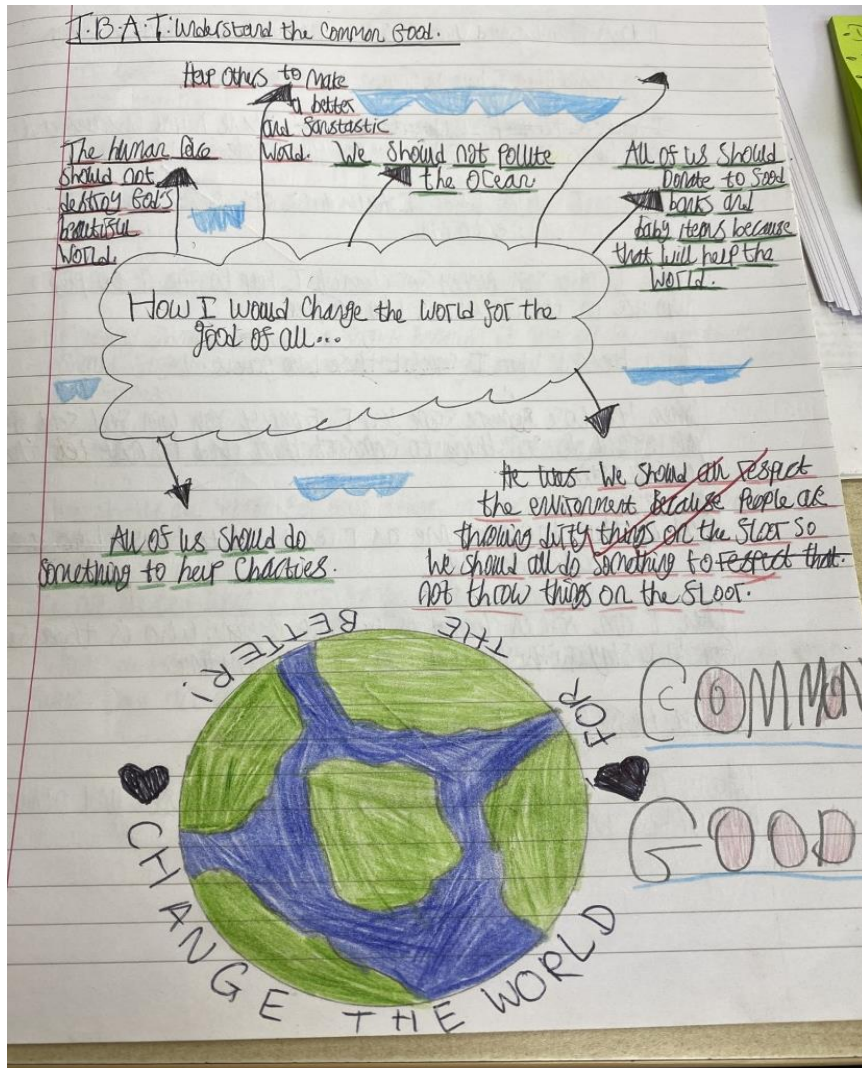 T.B.A.T: Understand the Common Good.
Help others to make
a better
and fanstastic
world.
The human race
should not
destroy God's
beautiful
world.
We should not pollute
the ocean
All of us should
Donate to food
banks and
baby items because
that will help the
world.
How I would change the world for the
good of all...
All of us should do
something to help charties.
He was We should all respect
the environment because people are
throwing dirty things on the floor so
we should all do something to respect that.
not throw things on the floor.
CHANGE THE WORLD
FOR
THE BETTER!
COMMON
GOOD